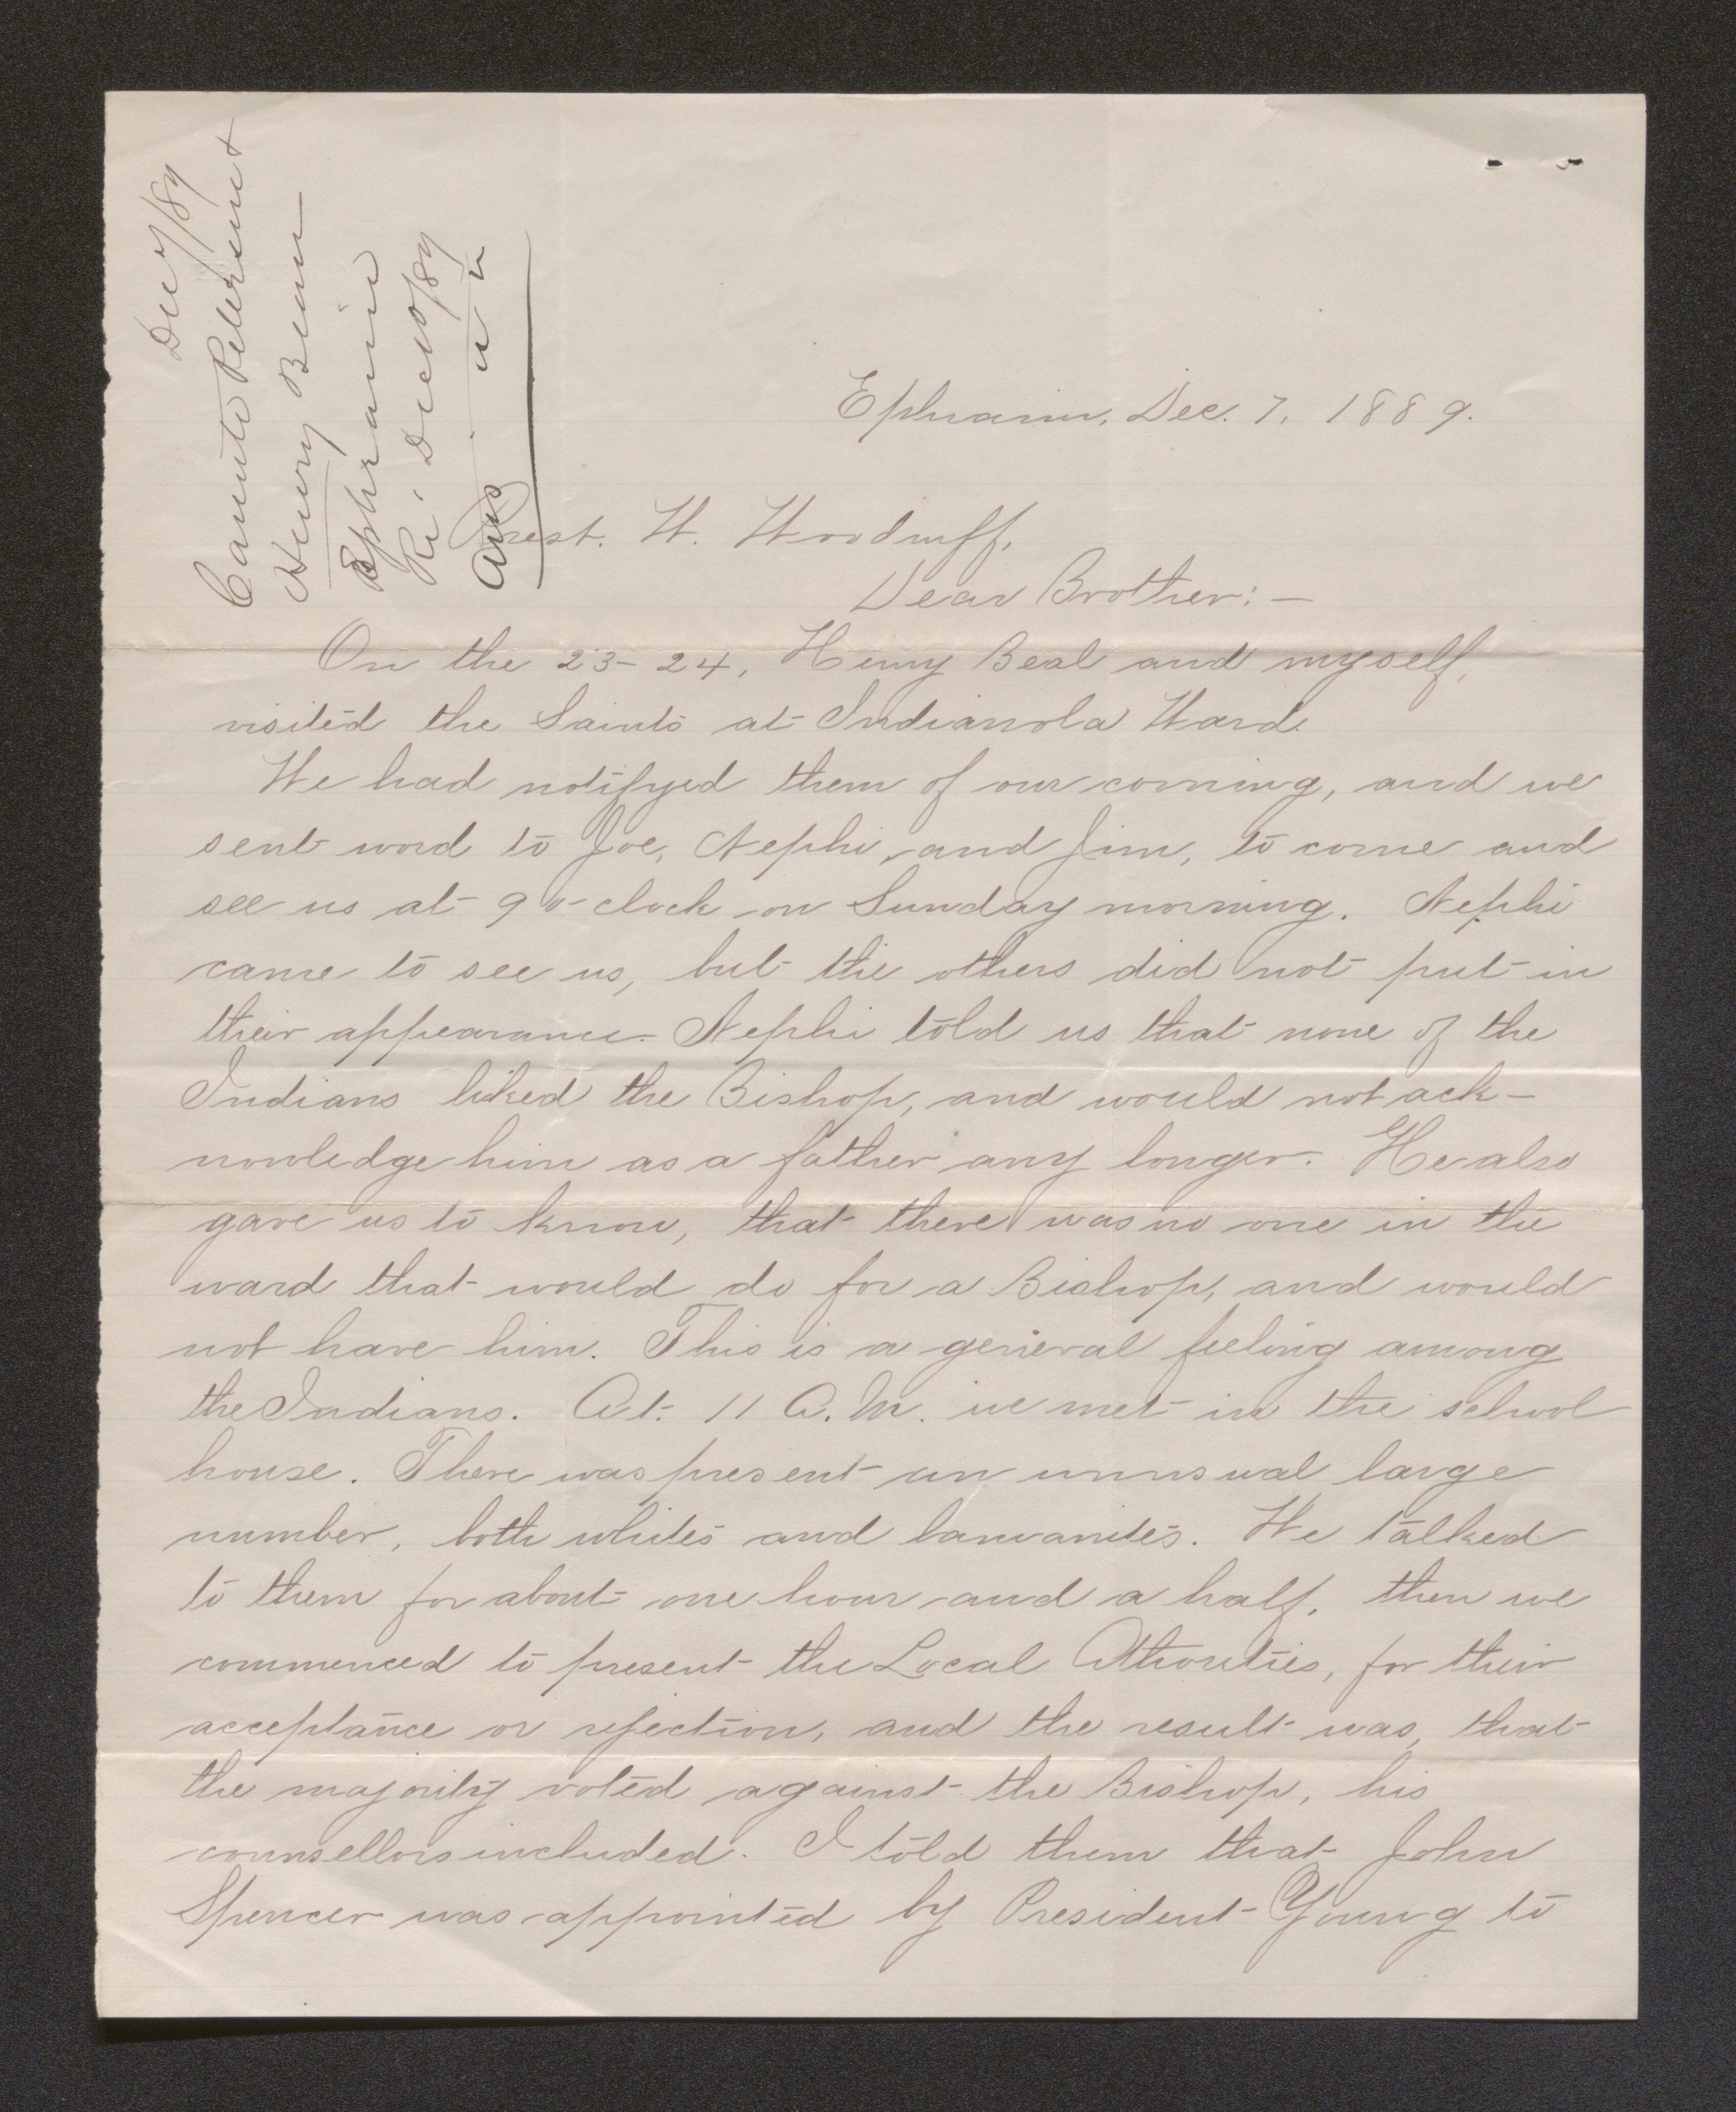 Dec 7/89
Canute Peterson &
Henry Beal
Ephraim
Rec. Dec 10/89
Ans. " "
Ephraim, Dec. 7, 1889.
Prest. W. Woodruff,
Dear Brother:—
On the 23-24, Henry Beal and myself,
visited the Saints at Indianola Ward.
We had notifyed them of our coming, and we
sent word to Joe, Nephi, and Jim, to come and
see us at 9 o-clock on Sunday morning. Nephi
came to see us, but the others did not put in
their appearance. Nephi told us that none of the
Indians liked the Bishop, and would not ack-
nowledge him as a father any longer. He also
gave us to know, that there was no one in the
ward that would do for a Bishop, and would
not have him. This is a general feeling among
the Indians. At. 11 A.M. we met in the school
house. There was present an unuswal large
number, both whites and lamanites. We talked
to them for about one hour and a half, then we
commenced to present the Local Athorities, for their
acceptance or rejection, and the result was, that
the majority voted against the Bishop, his
counsellors included. I told them that John
Spencer was appointed by President Young to